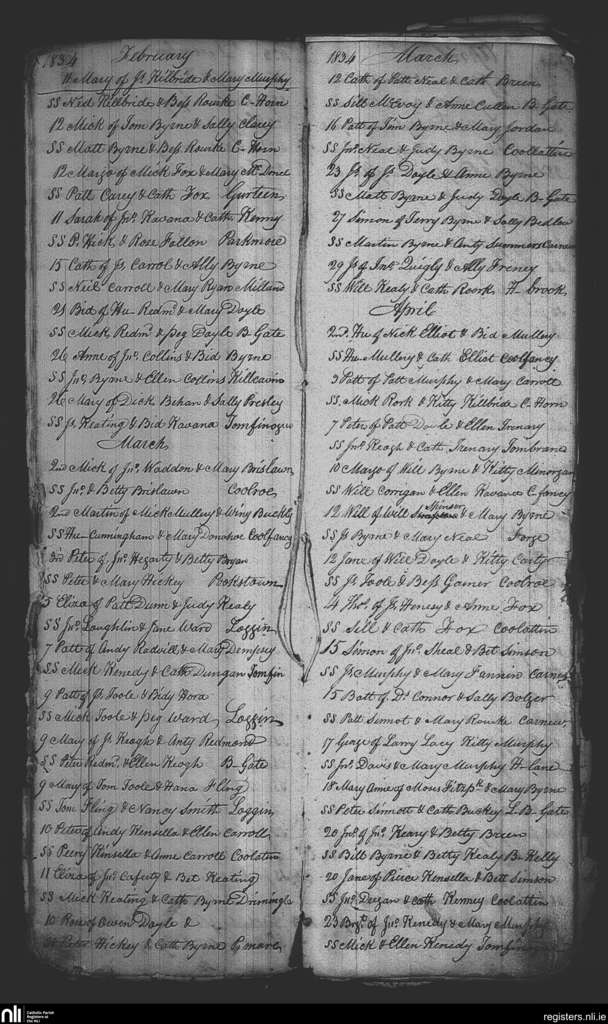 1834 February
11 Mary of Js Kilbride & Mary Murphy
SS Ned Kilbride & Bess Rourke C-Horn
12 Mick of Tom Byrne & Sally Clarey
SS Matt Byrne & Bess Rourke C-Horn
12 Margo of Mick Fox & Mary
SS Patt Carey & Cath Fox Gurteen
11 Sarah of Jno Kavana & Cath Kenny
SS P. Hick & Rose Fallon Parkmore
15 Cath of Js Carrol & Ally Byrne
SS Neil Carroll & Mary Ryan
21 Bid of Hu Redmd & Mary Doyle
SS Mick Redmd & Peg Doyle B Gate
26 Anne of Jno Collins & Bid Byrne
SS Jno Byrne & Ellen Collins Kilcavin
26 Mary of Dick Behan & Sally Presley
SS Js Keating & Bid Kavana
March
2nd Mick of Jno Waddon & Mary Brislawn
SS Jno & Betty Brislawn Coolroe
2nd Martin of Mick Mullery & Winy Buckley
SS Hu Cunningham & Mary Donohoe Coolfancy
3rd Peter of Jno Hegarty & Betty Bryan
SS Peter & Mary Hickey
5 Eliza of Patt Dunn & Judy Kealy
SS Jno Laughlin & Jane Ward Loggin
7 Patt of Andy Radwill & Mary Dempsy
SS Mick Kenedy & Cath Dungan
9 Patt of Js Toole & Bidy Hora
SS Mick Toole & Peg Ward Loggin
9 Mary of Js Keogh & Anty Redmond
SS Peter Redmd & Ellen Keogh B Gate
9 Mary of Tom Toole & Hana Fling
SS Tom Fling & Nancy Smith Loggin
10 Peter of Andy Kinsella & Ellen Carroll
SS Peery Kinsella & Anne Carroll
11 Eliza of Jno Caferty & Bet Keating
SS Mick Keating & Cath Byrne
10 Rose of Owen Doyle &
SS Peter Hickey & Cath Byrne
1834 March
12 Cath of Patt Neal & Cath Breen
SS Sill McEvoy & Anne Cullen B-Gate
16 Patt of Tim Byrne & Mary Jordan
SS Jno Neal & Judy Byrne Coollattin
23 Js of Js Doyle & Anne Byrne
SS Matt Byrne & Judy Doyle B-Gate
27 Simon of Terry Byrne & Sally Bedlow
SS Martin Byrne & Anty Summers Carnew
29 Js of Jno Quigly & Ally Freney
SS Will Kealy & Cath Roork H. brook
April
2d Hu of Nick Elliot & Bid Mullery
SS Hu Mullery & Cath Elliot Coolfancy
3 Patt of Patt Murphy & Mary Carroll
SS Mick Rork & Kitty Kilbride C. Horn
7 Peter of Patt Doyle & Ellen Trenary
SS Jno Keogh & Cath Trenary
10 Margo of Will Byrne & Kitty
SS Will Corrigan & Ellen Kavana C. fancy
12 Will of Will Spinser & Mary Byrne
SS Js Byrne & Mary Neal Forge
12 Jane of Will Doyle & Kitty Carty
SS Js Toole & Bess Gainer Coolroe
4 Thos of Js Heneey & Anne Fox
SS Sill & Cath Fox Coolattin
15 Simon of Jno Sheal & Bet Simson
SS Js Murphy & Mary Fannin Carnew
15 Batt of Ds Connor & Sally Bolger
SS Patt Sinnot & Mary Rourke Carnew
17 George of Larry Lacy Kitty Murphy
SS Jno Davis & Mary Murphy H-lane
18 Mary Anne of Moses Fitzpk & Mary Byrne
SS Peter Sinnott & Cath Buckey L. B-Gate
20 Jno of Jno Keary & Betty Breen
SS Bill Byrne & Betty Kealy B. Kelly
20 Jane of Pierce Kensella & Bett Simson
SS Jno Deegan & Cath Kenney Coolattin
23 Brgt of Jno Kenedy & Mary Murphy
SS Mick & Ellen Kenedy
nli Catholic Parish Registers at the NLI
registers.nli.ie